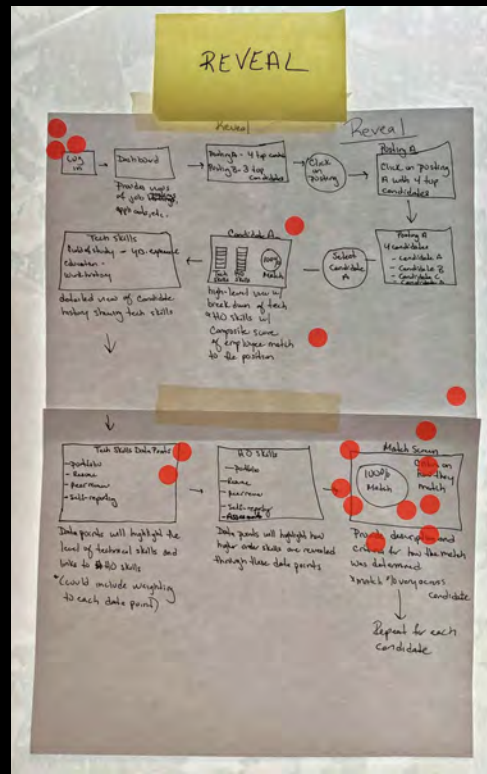 REVEAL
Reveal
Reveal
Log
in
Dashboard
Provides views
of job
applicants, etc.
Posting A - 4 top
Posting B - 3 top
candidates
Click
on
posting
Posting A
Click on posting
A with 4 top
candidates
Posting A
4 candidates
- Candidate A
- Candidate B
- Candidate C
Select
Candidate
A
Candidate A
Tech
Skills
Skills
100%
Match
high-level view w/
breakdown of tech
HO skills w/
Composite score
of employee match
to the position
Tech Skills
of study - 40
education -
Work history
detailed view of Candidate
history showing tech skills
Tech Skills Data Points
- portfolio
- Resume
- peer review
- Self-reporting
Data points will highlight the
level of technical skills and
links to HO skills
*(could include weighting
to each data point)
HO Skills
- portfolio
- Resume
- peer review
- Self-reporting
Data points will highlight how
higher order skills are revealed
through these data points
Match Screen
100%
Match
on
they
match
description and
criteria for how the match
was determined
*match % vary across
candidate
Repeat for each
candidate